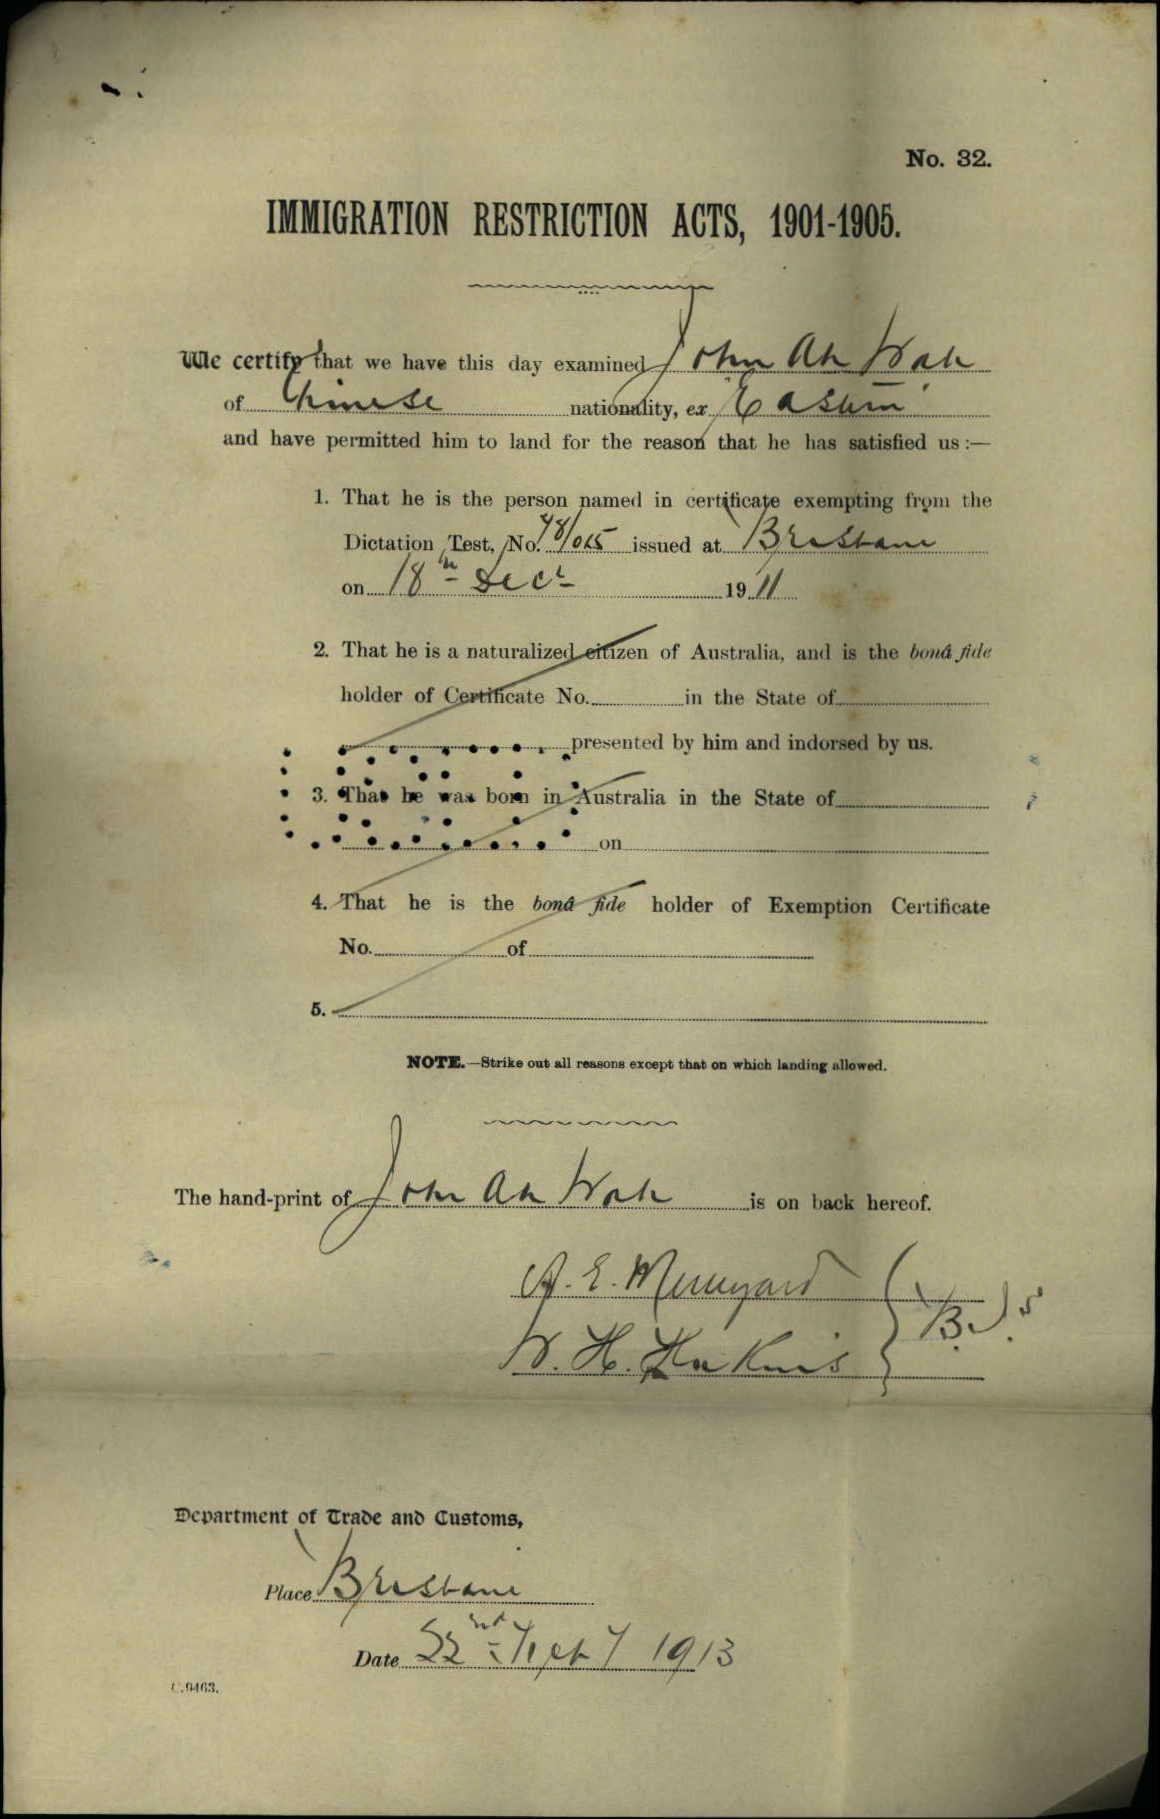 No. 32.
IMMIGRATION RESTRICTION ACTS, 1901-1905.
We certify that we have this day examined John Ah Wah
of Chinese nationality, ex "Eastern"
and have permitted him to land for the reason that he has satisfied us :—
1. That he is the person named in certificate exempting from the
Dictation Test, No. 48/015 issued at Brisbane
on 18th Decr 1911
2. That he is a naturalized citizen of Australia, and is the bonâ fide
holder of Certificate No. in the State of
presented by him and indorsed by us.
3. That he was born in Australia in the State of
on
4. That he is the bonâ fide holder of Exemption Certificate
No. of
5.
NOTE.—Strike out all reasons except that on which landing allowed.
The hand-print of John Ah Wah is on back hereof.
A. E.
W. H.
Department of Trade and Customs,
Place Brisbane
Date 22nd 1913
C.9463.